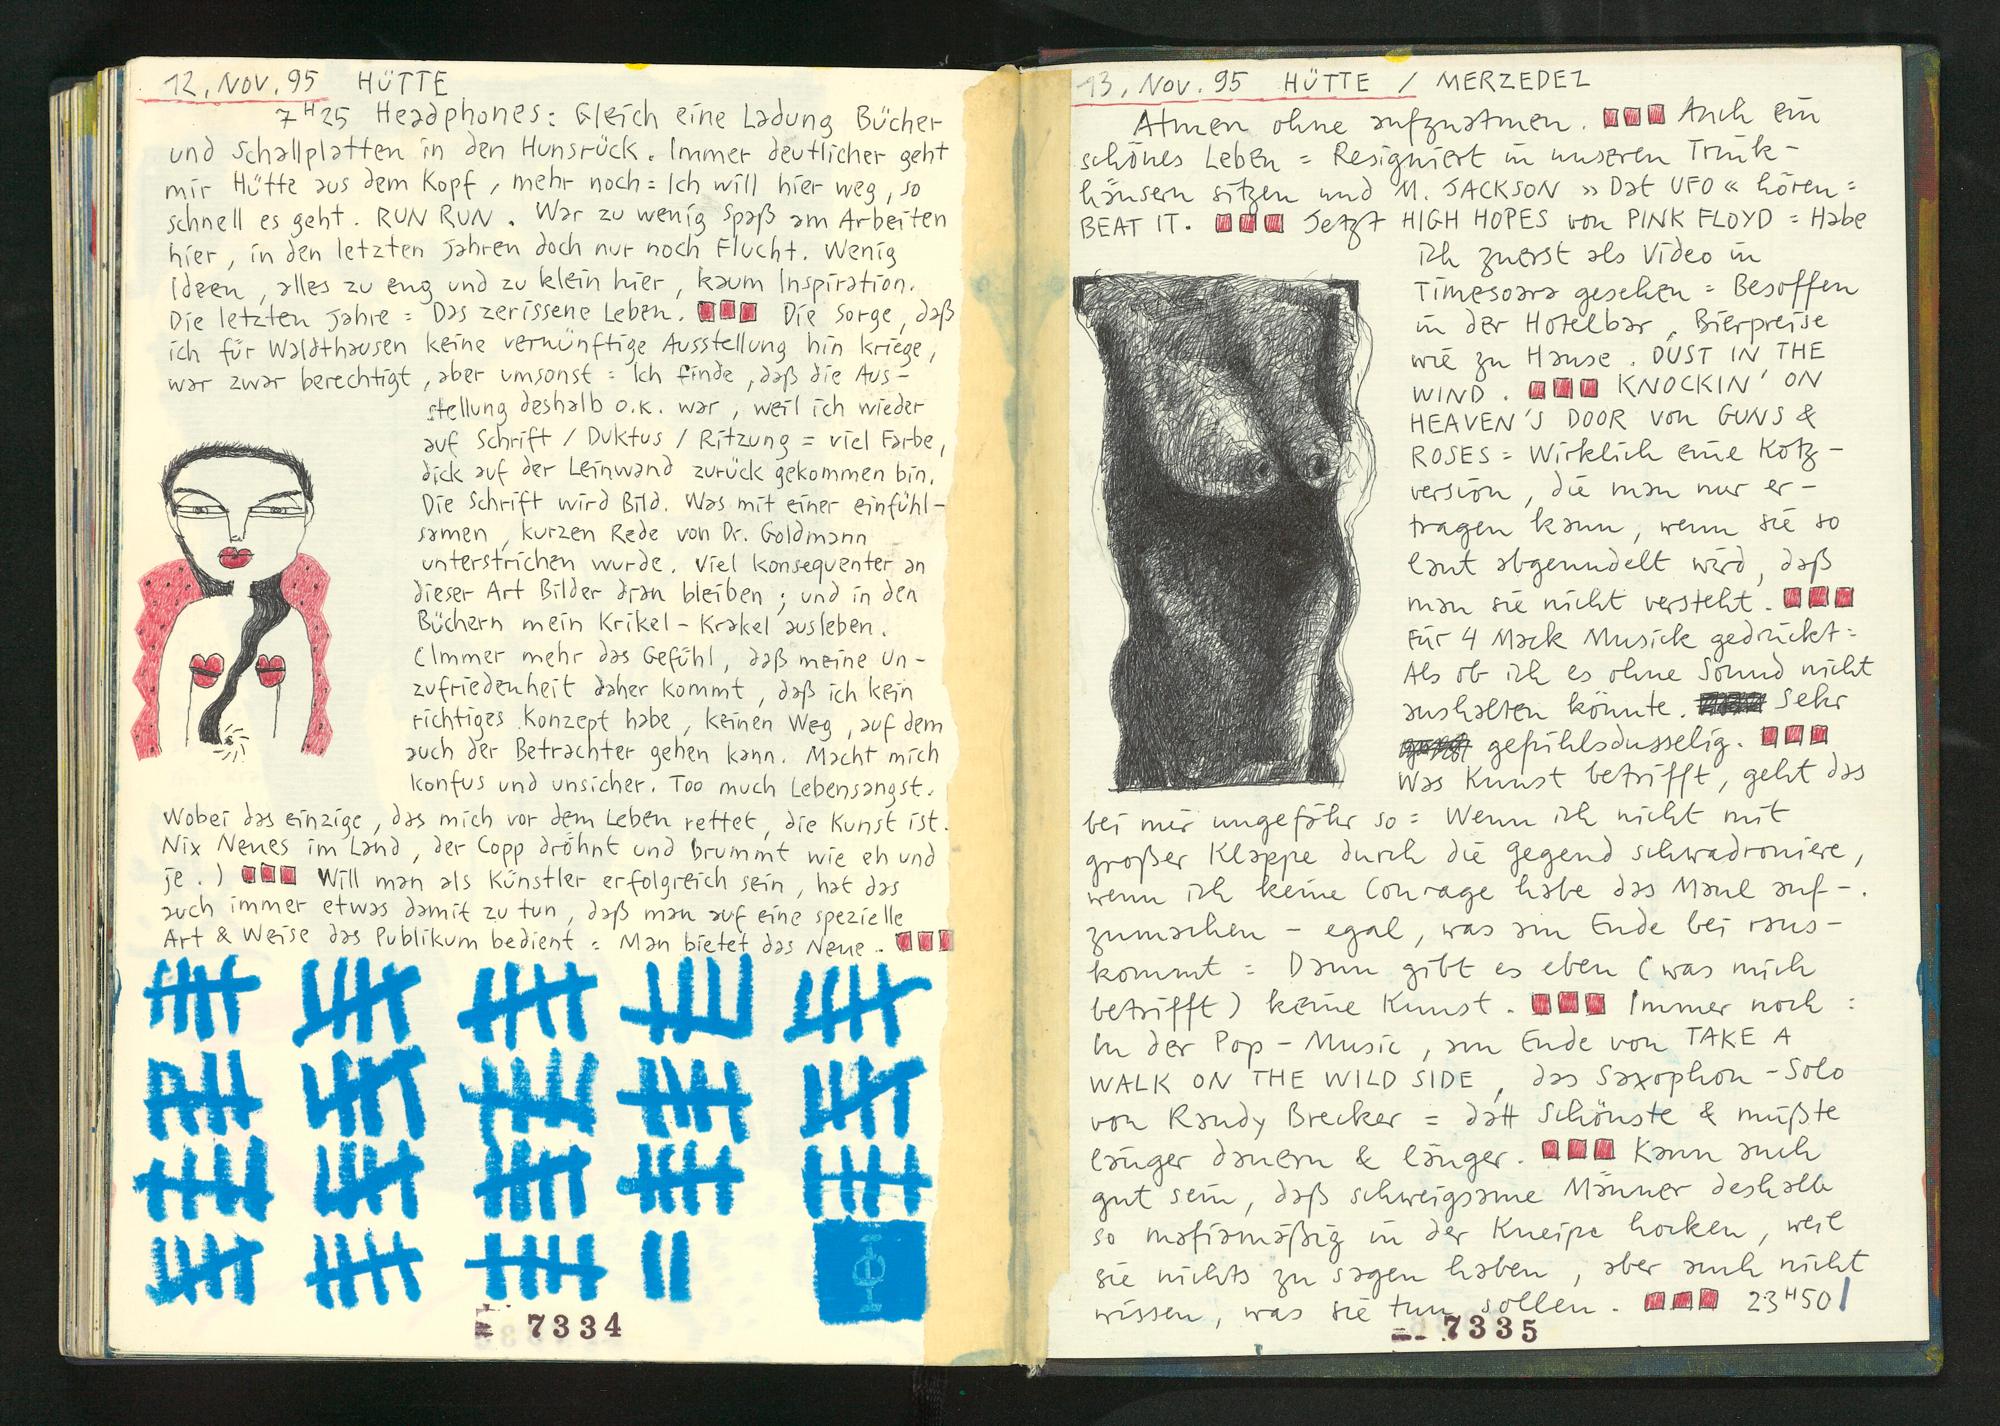 12. NOV. 95 HÜTTE
7H25 Headphones: Gleich eine Ladung Bücher
und Schallplatten in den Hunsrück. Immer deutlicher geht
mir Hütte aus dem Kopf, mehr noch: Ich will hier weg, so
schnell es geht. RUN RUN. War zu wenig Spaß am Arbeiten
hier, in den letzten Jahren doch nur noch Flucht. Wenig
Ideen, alles zu eng und zu klein hier, kaum Inspiration.
Die letzten Jahre = Das zerissene Leben. Die Sorge, daß
ich für Waldthausen keine vernünftige Ausstellung hin kriege,
war zwar berechtigt, aber umsonst = Ich finde, daß die Aus-
stellung deshalb o.k. war, weil ich wieder
auf Schrift / Duktus / Ritzung = viel Farbe,
dick auf der Leinwand zurück gekommen bin.
Die Schrift wird Bild. Was mit einer einfühl-
samen, kurzen Rede von Dr. Goldmann
unterstrichen wurde. Viel konsequenter an
dieser Art Bilder dran bleiben; und in den
Büchern mein Krikel-Krakel ausleben.
(Immer mehr das Gefühl, daß meine Un-
zufriedenheit daher kommt, daß ich kein
richtiges Konzept habe, keinen Weg, auf dem
auch der Betrachter gehen kann. Macht mich
konfus und unsicher. Too much Lebensangst.
Wobei das einzige, das mich vor dem Leben rettet, die Kunst ist.
Nix Neues im Land, der Copp dröhnt und brummt wie eh und
je.) Will man als Künstler erfolgreich sein, hat das
auch immer etwas damit zu tun, daß man auf eine spezielle
Art & Weise das Publikum bedient = Man bietet das Neue.
7334
13. NOV. 95 HÜTTE / MERZEDEZ
Atmen ohne aufzuatmen. Auch ein
schönes Leben = Resigniert in unseren Trink-
häusern sitzen und M. JACKSON »Dat UFO« hören =
BEAT IT. Jetzt HIGH HOPES von PINK FLOYD = Habe
ich zuerst als Video in
Timesoara gesehen = Besoffen
in der Hotelbar, Bierpreise
wie zu Hause. DUST IN THE
WIND. KNOCKIN' ON
HEAVEN'S DOOR von GUNS &
ROSES = Wirklich eine Kotz-
version, die man nur er-
tragen kann, wenn sie so
laut abgenudelt wird, daß
man sie nicht versteht.
Für 4 Mack Musick gedrückt =
Als ob ich es ohne Sound nicht
aushalten könnte. Sehr
gefühlsdusselig.
Was Kunst betrifft, geht das
bei mir ungefähr so = Wenn ich nicht mit
großer Klappe durch die Gegend schwadroniere,
wenn ich keine Courage habe das Maul auf-
zumachen - egal, was am Ende bei raus-
kommt = Dann gibt es eben (was mich
betrifft) keine Kunst. Immer noch =
In der Pop-Music, am Ende von TAKE A
WALK ON THE WILD SIDE, das Saxophon-Solo
von Randy Brecker = datt Schönste & müßte
länger dauern & länger. Kann auch
gut sein, daß schweigsame Männer deshalb
so mafiamäßig in der Kneipe hocken, weil
sie nichts zu sagen haben, aber auch nicht
wissen, was sie tun sollen. 23H50
7335